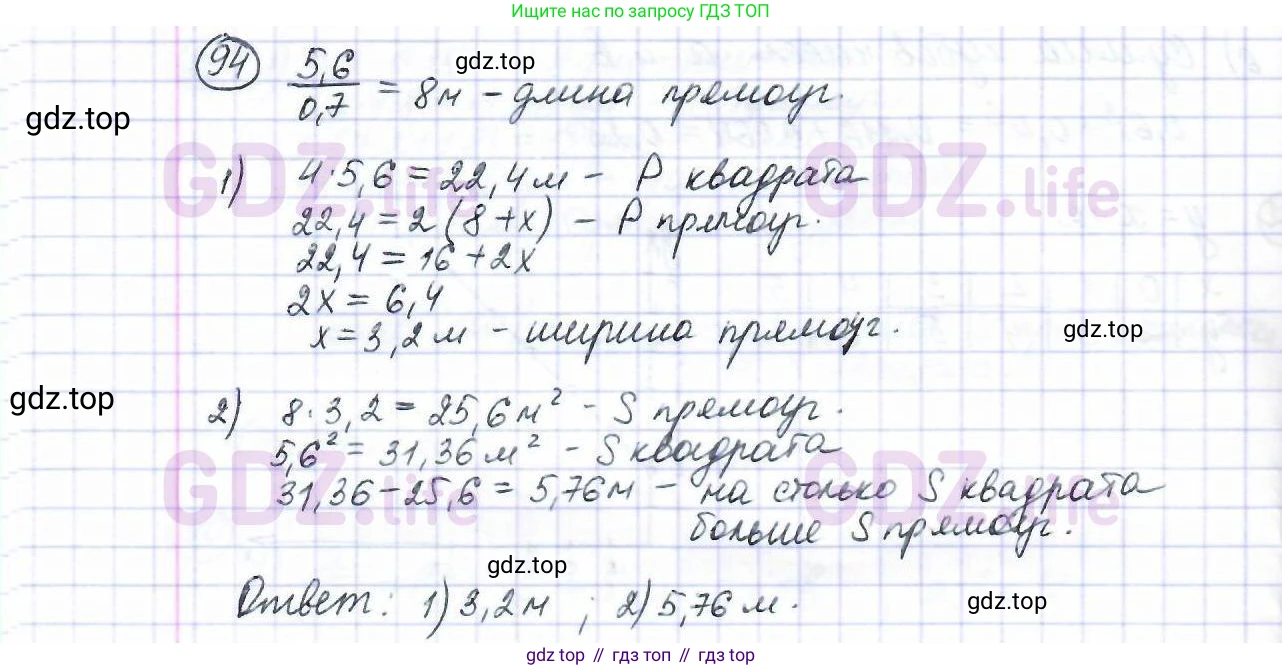 Ищите нас по запросу ГДЗ ТОП
94 5,6/0,7 = 8м – длина прямоуг.
gdz.top
gdz.top
GDZ.life GDZ.life
1) 4·5,6 = 22,4 м – P квадрата
22,4 = 2 (8 + x) – P прямоуг.
22,4 = 16 + 2x
2x = 6,4
x = 3,2 м – ширина прямоуг.
gdz.top
gdz.top
2) 8·3,2 = 25,6 м² – S прямоуг.
5,6² = 31,36 м² – S квадрата
31,36 – 25,6 = 5,76м – на столько S квадрата
больше S прямоуг.
GDZ.life GDZ.life
gdz.top
Ответ: 1) 3,2 м ; 2) 5,76 м.
gdz.top
gdz.top // гдз топ // gdz top